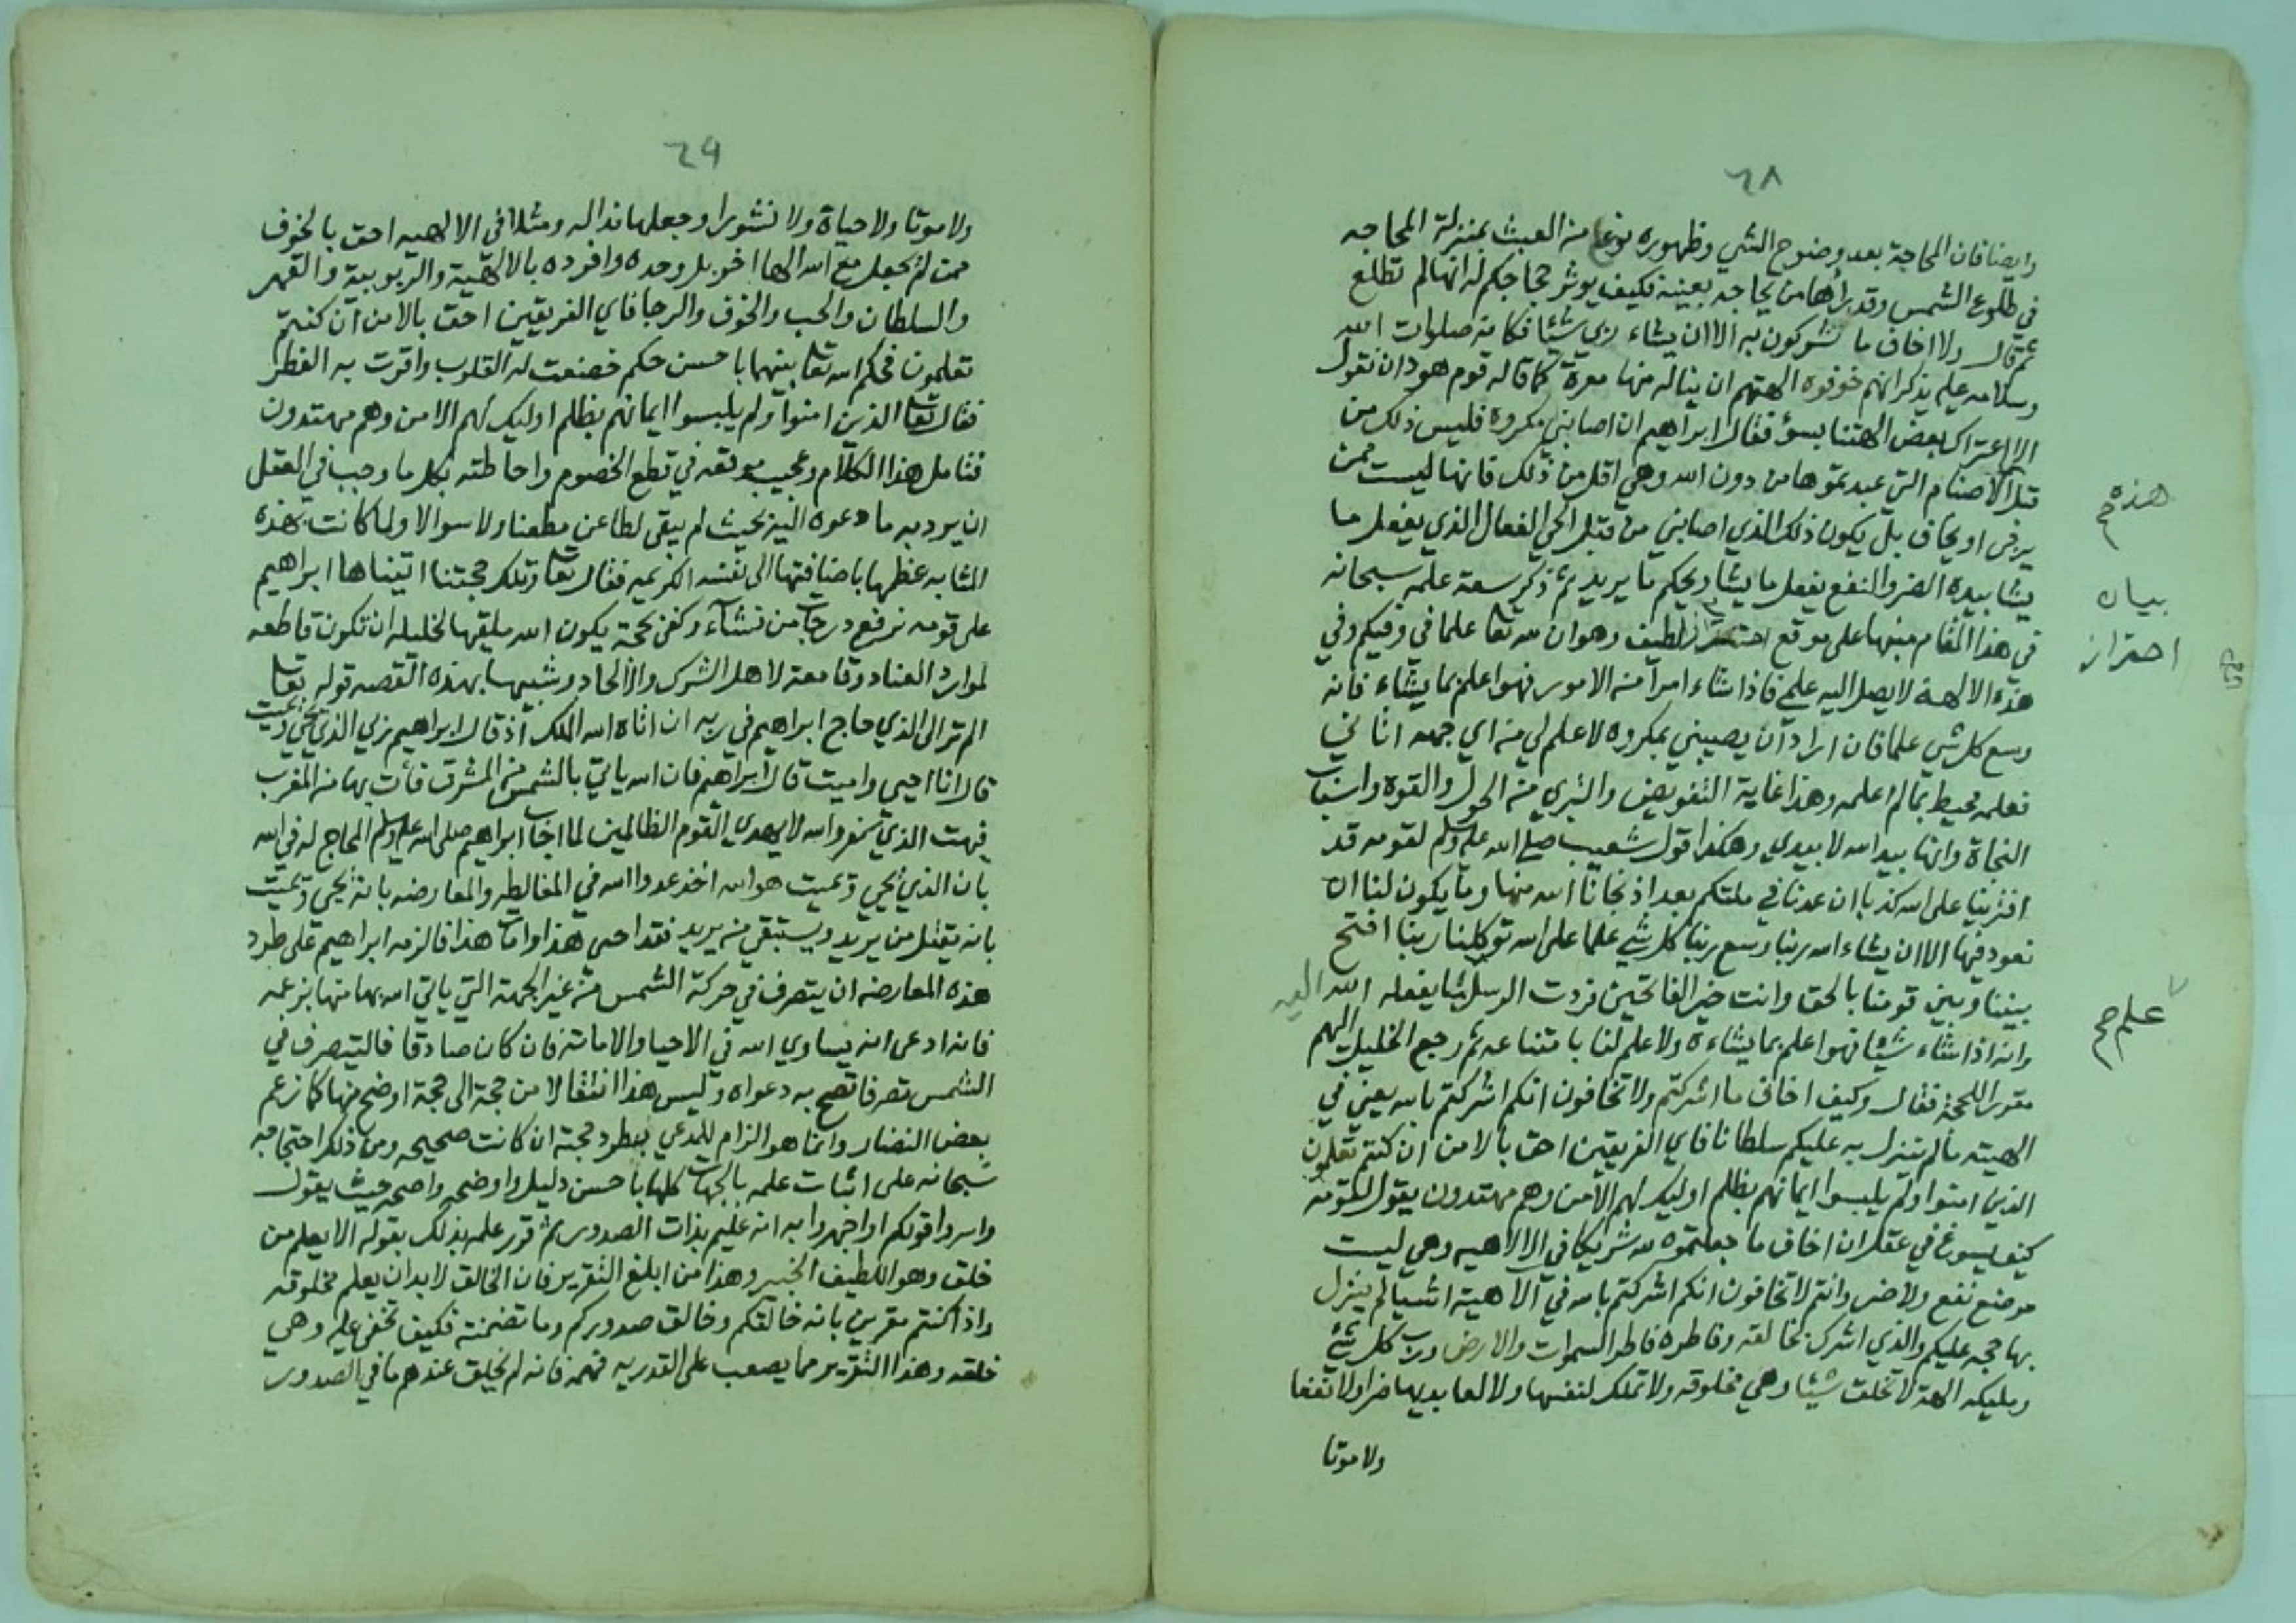 ٦٨
وايضا فان المحاجة بعد وضوح الشي وظهوره نوعا من العبث بمنزلة المحاجه
في طلوع الشمس وقد رأها من يحاجه بعينه فكيف يوثر حجاجكم له انها لم تطلع
ثم قال ولا اخاف ما تشركون به الا ان يشاء ربي شيئا فكانه صلوات الله
وسلامه عليه يذكر انهم خوفوه الهتهم ان يناله منها معرة كما قاله قوم هود ان نقول
الا اعتراك بعض الهتنا بسؤ فقال ابراهيم ان اصابني مكروه فليس ذلك من
قبل الاصنام التي عبدتموها من دون الله وهي اقل من ذلك فانها ليست ممن
يرجى او يخاف بل يكون ذلك الذي اصابني من قبل الحي الفعال الذي يفعل ما
يشا بيده الضر والنفع يفعل ما يشا ويحكم ما يريد ثم ذكر سعة علمه سبحانه
في هذا المقام منبها على موقع لطيف وهو ان لله تعا علما في وفيكم وفي
هذه الالهة لا يصل اليه علمي فاذا شاء امرا من الامور فهو اعلم بما يشاء فانه
وسع كل شي علما فان اراد ان يصيبني بمكروه لا علم لي من اي جهه اتاني
فعلمه محيط بما لم اعلمه وهذا غاية التفويض والتبري من الحول والقوه واسباب
النجاة وانها بيد الله لا بيدي وهكذا قول شعيب صلى الله عليه وسلم لقومه قد
افترينا على الله كذبا ان عدنا في ملتكم بعد اذ نجانا الله منها وما يكون لنا ان
نعود فيها الا ان يشاء الله ربنا وسع ربنا كل شي علما على الله توكلنا ربنا افتح
بيننا وبين قومنا بالحق وانت خير الفاتحين فردت الرسل بما يفعله الله اليه
وانه اذا شاء شيئا فهو اعلم بما يشاءه ولا علم لنا بامتناعه ثم رجع الخليل اليهم
مقررا للحجة فقال وكيف اخاف ما اشركتم ولا تخافون انكم اشركتم بالله يعني في
الهيته ما لم ينزل به عليكم سلطانا فاي الفريقين احق بالامن ان كنتم تعلمون
الذين امنوا ولم يلبسوا ايمانهم بظلم اوليك لهم الامن وهم مهتدون يقول لقومه
كيف يسوغ في عقل ان اخاف ما جعلتموه لله شريكا في الالاهيه وهي ليست
موضع نفع ولا ضر وانتم لا تخافون انكم اشركتم بالله في الاهيته اشيا لم ينزل
بها حجه عليكم والذي اشرك بخالقه وفاطره فاطر السموات والارض ورب كل شئ
ومليكه الهة لا تخلق شيئا وهي مخلوقه ولا تملك لنفسها ولا لعابديها ضرا ولا نفعا
ولا موتا
هذه صح
بيان
احتراز
علم صح
٦٩
ولا موتا ولا حياة ولا نشورا وجعلها ندا له ومثلا في الالهيه احق بالخوف
ممن لم يجعل مع الله الها اخر بل وحده وافرده بالالهية والربوبية والقهر
والسلطان والحب والخوف والرجا فاي الفريقين احق بالامن ان كنتم
تعلمون فحكم الله تعا بينهما باحسن حكم خضعت له القلوب واقرت به الفطر
فقال تعا الذين امنوا ولم يلبسوا ايمانهم بظلم اوليك لهم الامن وهم مهتدون
فتامل هذا الكلام وعجيب موقعه في قطع الخصوم واحاطته بكل ما وجب في العقل
ان يرد به ما دعوه اليه بحيث لم يبقى لطاعن مطعنا ولا سوالا ولما كانت بهذه
المثابه عظمها باضافتها الى نفسه الكريمه فقال تعا وتلك حجتنا اتيناها ابراهيم
على قومه نرفع درجات من نشآء وكفى بحجة يكون الله ملقيها لخليله ان تكون قاطعه
لموارد العناد وقامعة لاهل الشرك والالحاد وشبيها بهذه القصه قوله تعا
الم تر الى الذي حاج ابراهيم في ربه ان اتاه الله الملك اذ قال ابراهيم ربي الذي يحيي ويميت
قال انا احيي واميت قال ابراهيم فان الله ياتي بالشمس من المشرق فأت بها من المغرب
فبهت الذي كفر والله لا يهدي القوم الظالمين لما اجاب ابراهيم صلى الله عليه وسلم المحاج له في الله
بان الذي يحيي ويميت هو الله اخذ عدوا الله في المغالطه والمعارضه بانه يحيي ويميت
بانه يقتل من يريد ويستبقي من يريد فقد احيى هذا وامات هذا فالزمه ابراهيم على طرد
هذه المعارضه ان يتصرف في حركة الشمس من غير الجهة التي ياتي الله بها منها بزعمه
فانه ادعى انه يساوي الله في الاحيا والاماتة فان كان صادقا فاليتصرف في
الشمس تصرفا تصح به دعواه وليس هذا انتقالا من حجة الى حجة اوضح منها كما زعم
بعض النضار وانما هو الزام للمدعي بطرد حجته ان كانت صحيحه ومن ذلك احتجاجه
سبحانه على اثبات علمه بالجهات كلها باحسن دليل واوضحه واصحه حيث يقول
واسروا قولكم او اجهروا به انه عليم بذات الصدور ثم قرر علمه بذلك بقوله الا يعلم من
خلق وهو اللطيف الخبير وهذا من ابلغ التقرير فان الخالق لا بد ان يعلم مخلوقه
واذا كنتم مقرين بانه خالقكم وخالق صدوركم وما تضمنته فكيف تخفى عليه وهي
خلقه وهذا التقرير مما يصعب على القدريه فهمه فانه لم يخلق عندهم ما في الصدور